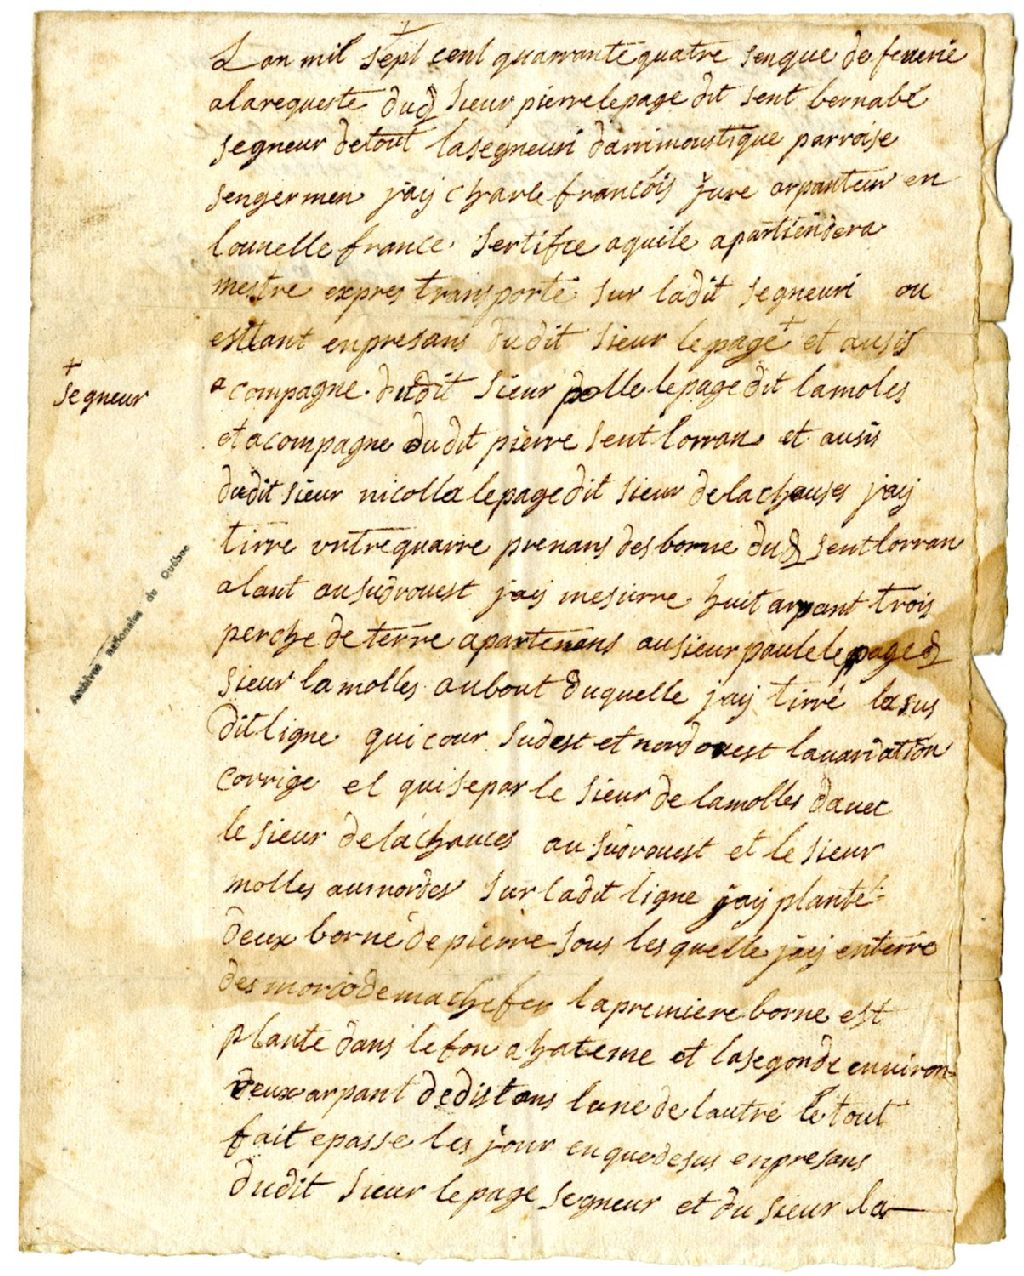 Lan mil sept cent quarrante quatre senque de feverie
alarequeste dud sieur pierre lepage dit sent bernabé
segneur detout lasegneuri darimoustique parroise
sengermen jaij charle francois jure arpanteur en
lounelle france sertifie aquile apartiendera
mestre expres transporté sur ladit segneuri ou
estant enpresans dudit sieur lepage + et ausis
+
segneur
acompagne dudit sieur polle lepage dit lamoles
etacompagne dudit pierre sent lorran et ausis
dudit sieur nicolla lepage dit sieur delachauses jaij
tirre vntrequarre prenans desborne dud sentlorran
alant ausudrouest jaij mesurre huit arpant trois
perche de terre apartenans ausieur paule lepage d
sieur lamolles aubout duquelle jaij tirré lasus
ditligne qui cour sudest et nordouest lavariation
corrige et quisepar le sieur de lamolles davec
le sieur delachauces au sudrouest et le sieur
molles aunordes sur ladit ligne jaij planté
deux borne de pierre sous lesquelle jaij enterre
des morsodemachefer lapremiere borne est
plante dans lefon et lasegonde environ
deux arpant dedistans lune de lautre le tout
fait epasse les jour enquedesus enpresans
dudit sieur lepage segneur et du sieur la
Archives nationales du Québec